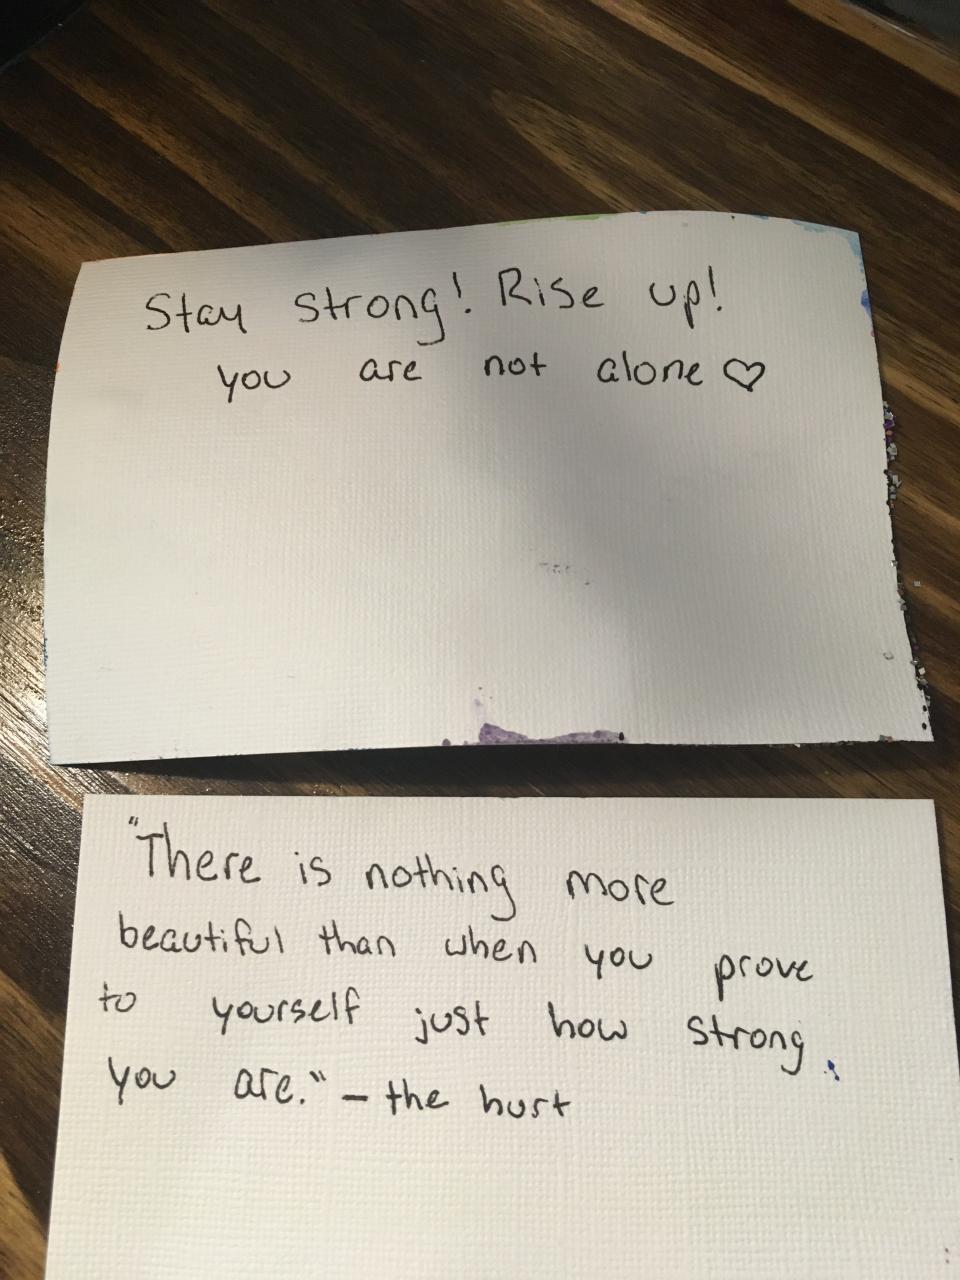 Stay strong! Rise up!
you are not alone ♡
"There is nothing more
beautiful than when you prove
to yourself just how strong
you are." – the hurt